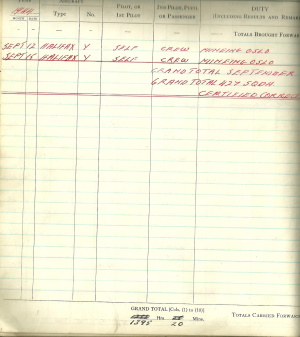 AIRCRAFT
PILOT, OR
1ST PILOT
2ND PILOT, PUPIL
OR PASSENGER
DUTY
(INCLUDING RESULTS AND REMARK
MONTH DATE Type No.
TOTALS BROUGHT FORWAR
SEPT 12 HALIFAX Y SELF CREW MINEING OSLO
SEPT 15 HALIFAX Y SELF CREW MINEING OSLO
GRAND TOTAL SEPTEMBER
GRAND TOTAL 427 SQDN
CERTIFIED CORREC
GRAND TOTAL [Cols. (1) to (10)]
Hrs. Mins.
1395 20
TOTALS CARRIED FORWAR